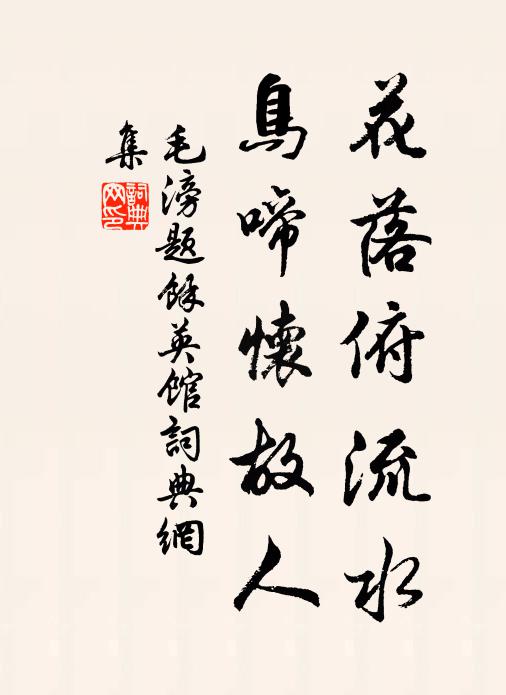 花落俯流水
鳥啼懷故人
毛滂題餘英館詞典網
集
詞典網印